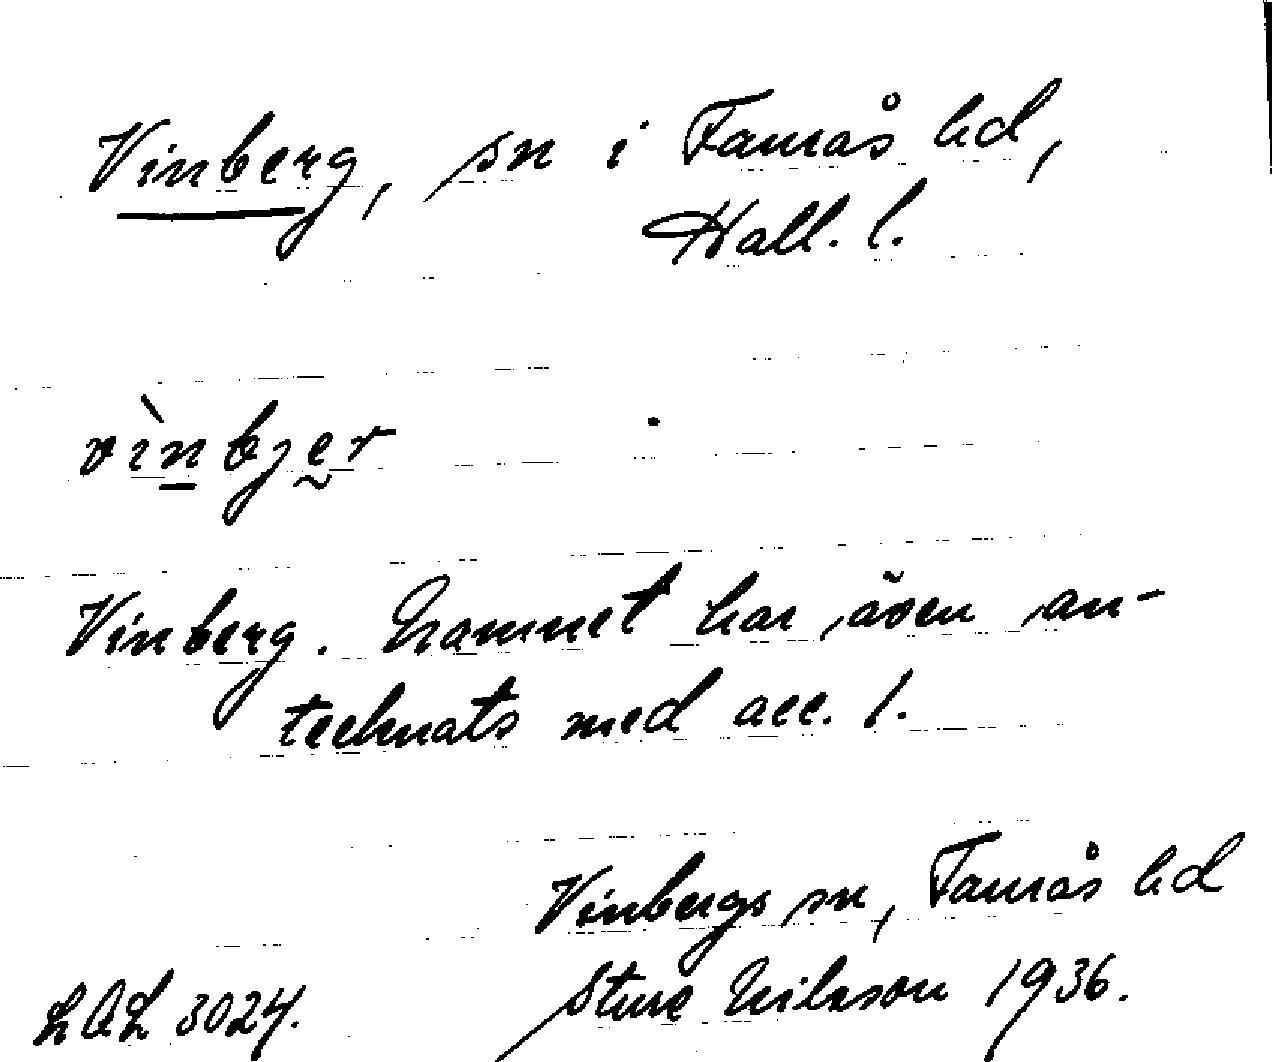 Vinberg, sn i Faurås hd,
Hall. l.
vìnbjer
Vinberg. Namnet har även an-
tecknats med acc. 1.
Vinbergs sn, Faurås hd
LAL 3024. Sture Nilsson 1936.